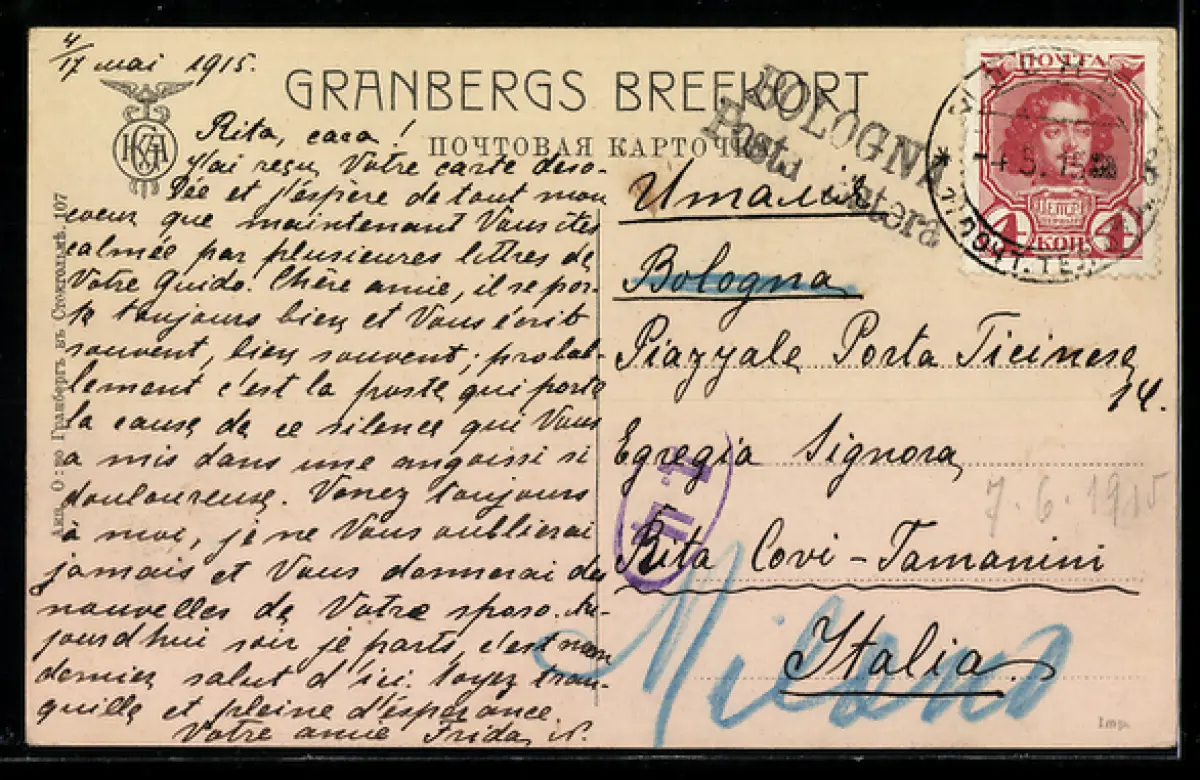 4/17 mai 1915.
GRANBERGS BREFKORT
ПОЧТОВАЯ КАРТОЧКА
Rita, cara!
J'ai reçu Votre carte deso-
lée et j'éspère de tout mon
coeur que maintenant Vous êtes
calmée par plusieures lettres de
Votre Guido. Chère amie, il se por-
te toujours bien et Vous écrit
souvent, bien souvent; probab-
lement c'est la poste qui porte
la cause de ce silence qui Vous
a mis dans une angoisse si
douloureuse. Venez toujours
à moi, je ne Vous oublierai
jamais et Vous donnerai des
nouvelles de Votre sposo. Au-
jourd'hui soir je parts, c'est mon
dernier salut d'ici. Soyez tran-
quille et pleine d'éspérance.
Votre amie Frida N.
Акц. О-во Гранбергъ въ Стокгольмѣ. 107
BOLOGNA
Posta Estera
Италія
Bologna
Piazzale Porta Ticinese
14.
Egregia Signora
Rita Covi-Tamanini
Italia
Milano
7.6.1915
ПОЧТА
4 КОП. 4
-4.5.15
ПОЧТ. ТЕЛ.
Imp.